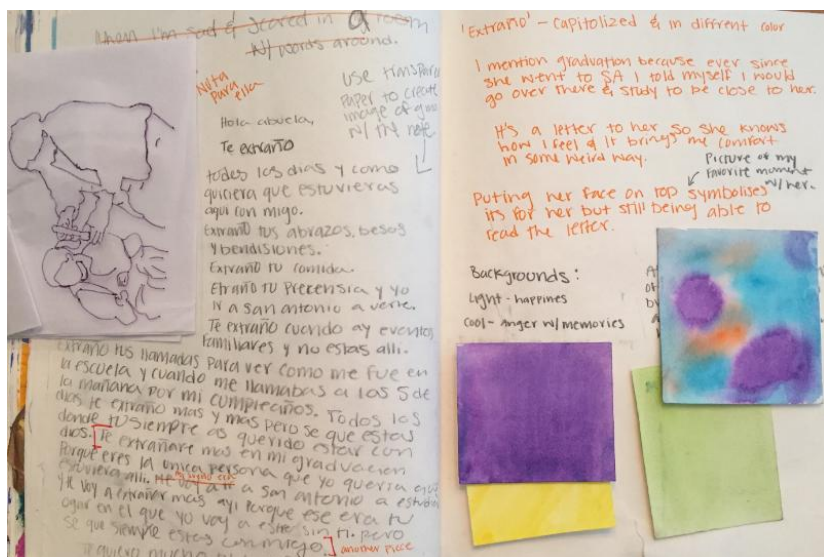 When I'm sad & scared in a room
w/ words around.
Nota
para
ella
use transpare
paper to create
image of
w/ the note
Hola abuela,
Te extraño
todos los dias y como
quiciera que estuvieras
aqui con migo.
Extraño tus abrazos, besos
y bendisiones.
Extraño tu comida.
Etraño tu Precensia y yo
ir a san antonio a verte.
Te extraño cuando ay eventos
familiares y no estas alli.
extraño tus llamadas para ver como me fue en
la escuela y cuando me llamabas a las 5 de
la mañana por mi cumpleaños. Todos los
dias te extraño mas y mas pero se que estas
donde tu siempre as querido estar con
dios. Te extrañare mas en mi graduacion
porque eres la unica persona que yo queria que
estuviera alli. voy a ir a san antonio a estudiar
y te voy a extrañar mas ayi porque ese era tu
lugar en el que yo voy a estar sin ti. pero
se que siempre estas conmigo.
another piece
Te quiero mucho
'Extraño' - Capitolized & in diffrent color
I mention graduation because ever since
she went to SA I told myself I would
go over there & study to be close to her.
It's a letter to her so she knows
how I feel & it brings me comfort
in some weird way.
Picture of my
favorite moment
w/ her.
Puting her face on top symbolises
its for her but still being able to
read the letter.
Backgrounds:
Light - happines
Cool - anger w/ memories